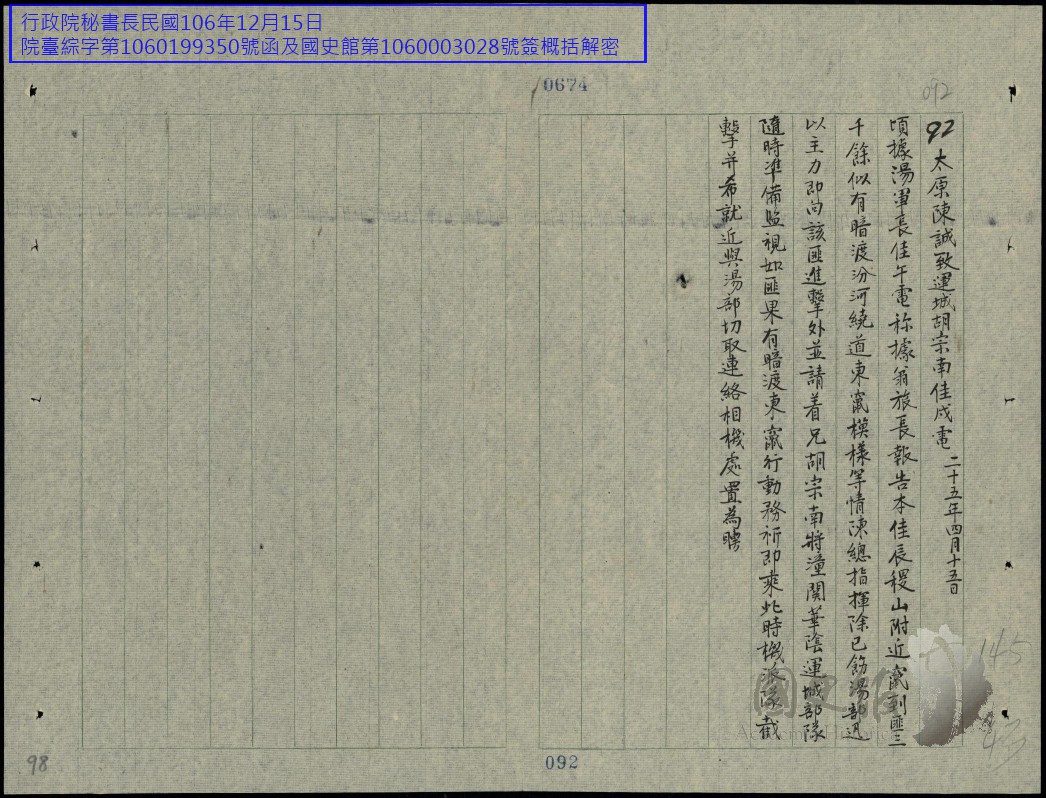 行政院秘書長民國106年12月15日
院臺綜字第1060199350號函及國史館第1060003028號簽概括解密
0674
092
92 太原陳誠致運城胡宗南佳戌電 二十五年四月十五日
頃據湯軍長佳午電称據翁旅長報告本佳辰稷山附近竄到匪三
千餘似有暗渡汾河繞道東竄模樣等情陳總指揮除已飭湯部迅
以主力即向該匪進擊外並請着兄胡宗南將潼関華陰運城部隊
隨時准備監視如匪果有暗渡東竄行動務祈即乘此時機派隊截
擊并希就近與湯部切取連絡相機處置為
國史館
145
98
092